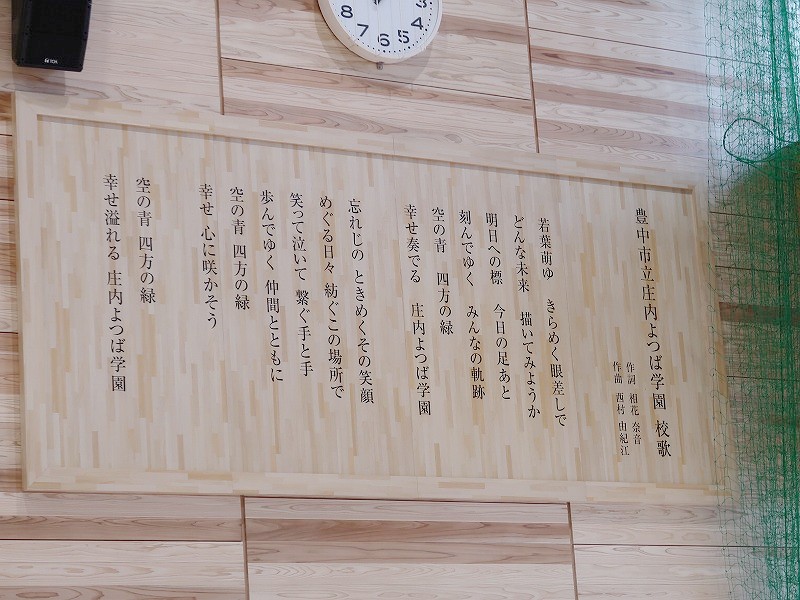 豊中市立庄内よつば学園 校歌
作詞 相花 奈音
作曲 西村 由紀江
若葉萌ゆ きらめく眼差しで
どんな未来 描いてみようか
明日への標 今日の足あと
刻んでゆく みんなの軌跡
空の青 四方の緑
幸せ奏でる 庄内よつば学園
忘れじの ときめくその笑顔
めぐる日々 紡ぐこの場所で
笑って泣いて 繋ぐ手と手
歩んでゆく 仲間とともに
空の青 四方の緑
幸せ 心に咲かそう
空の青 四方の緑
幸せ溢れる 庄内よつば学園
8 7 6 5 4 3
TOA